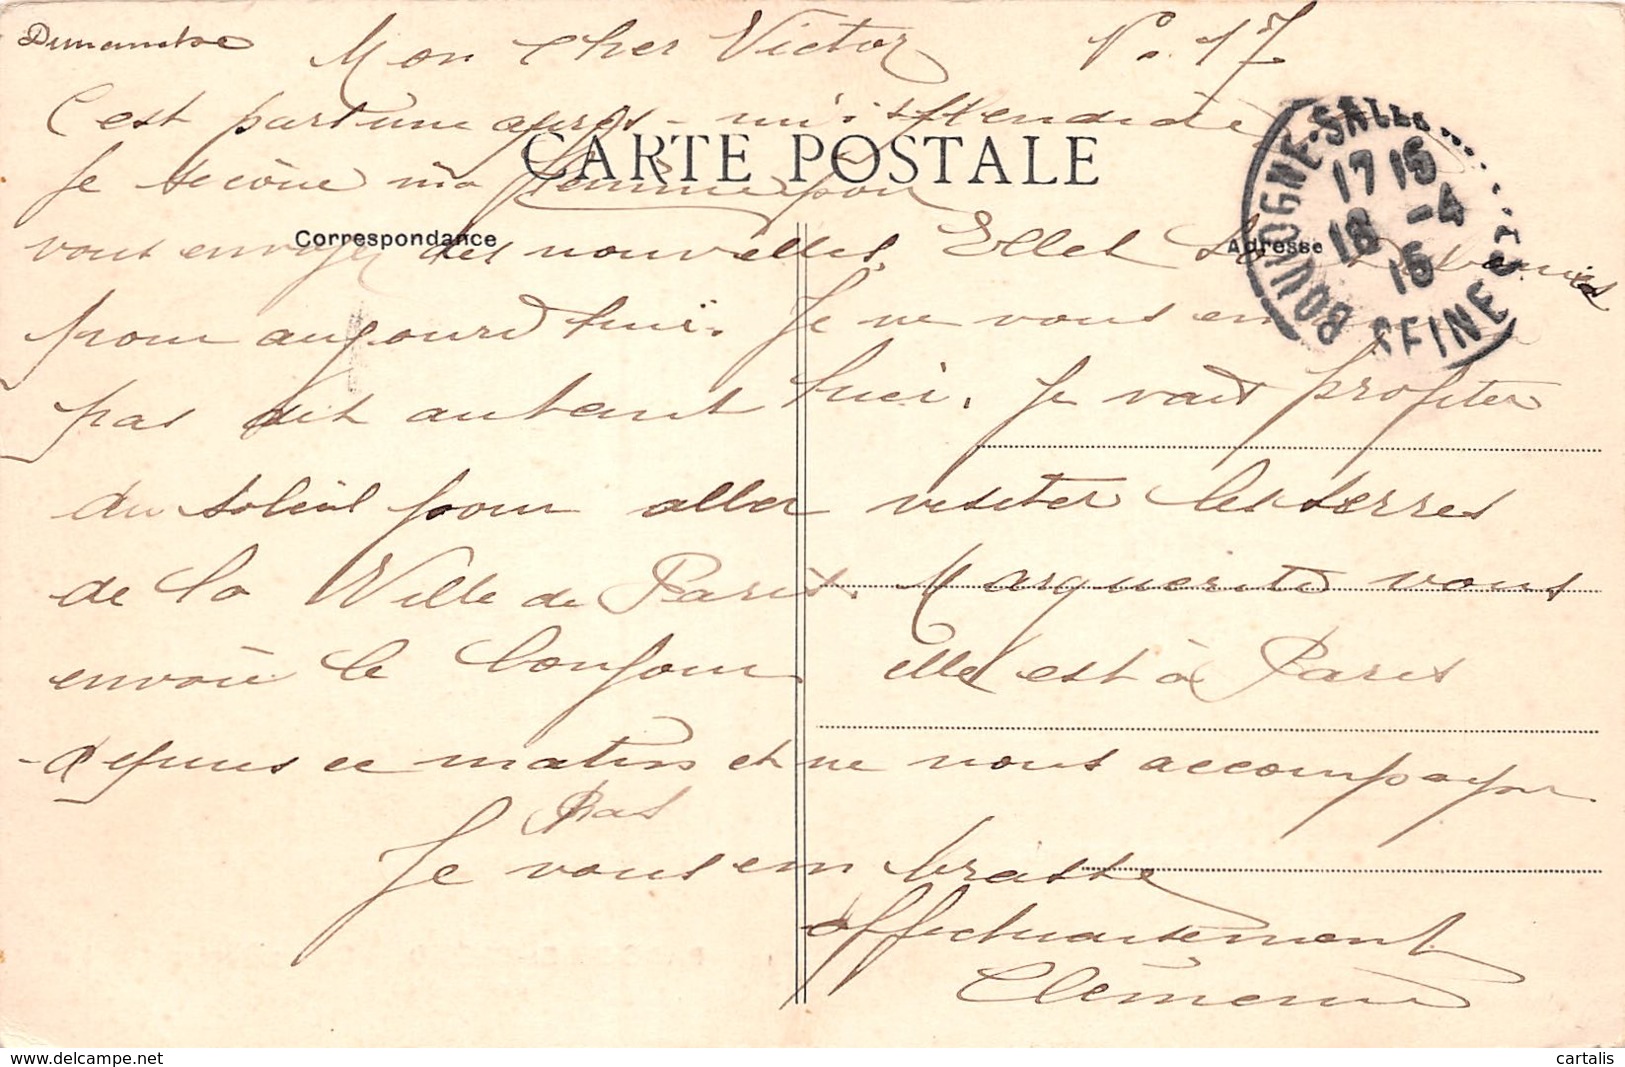 Dimanche
Mon cher Victor No 17
C'est par une après-midi splendide
CARTE POSTALE
Je secoue ma flemme pour
Correspondance
Adresse
vous envoyer des nouvelles. Elles sont
pour aujourd'hui. Je ne vous en
pas dit autant hier. Je vais profiter
du soleil pour aller visiter les serres
de la Ville de Paris. Marguerite vous
envoie le bonjour elle est à Paris
depuis ce matin et ne nous accompagne
Pas
Je vous embrasse
affectueusement
Clémence
BOULOGNE-S-SEINE
17 15
18 -4
15
cartalis
delcampe.net